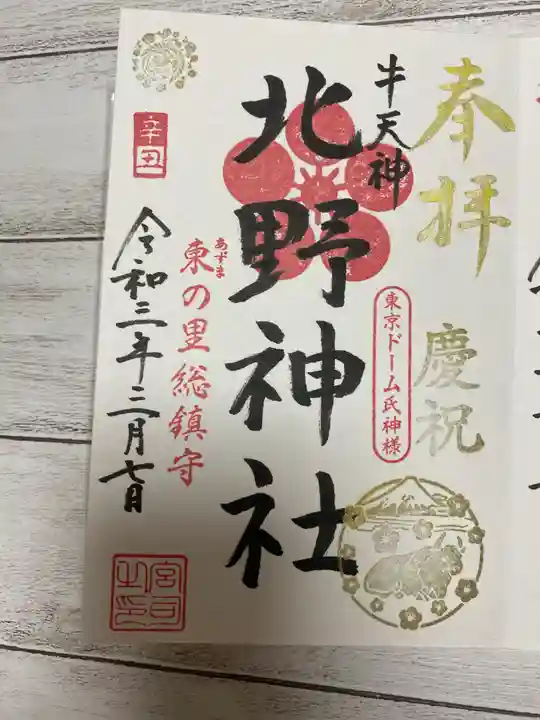 奉拝 慶祝
牛天神
東京ドーム氏神様
北野神社
あずま
東の里総鎮守
辛丑
令和三年三月七日